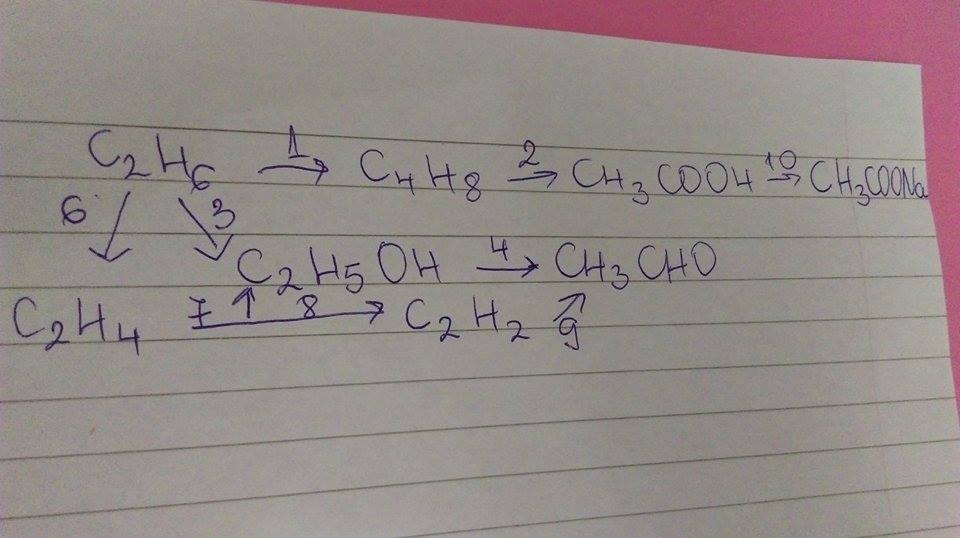 C₂H₆ 1→ C₄H₈ 2→ CH₃COOH 10→ CH₃COONa
6↙ 3↘
C₂H₅OH 4→ CH₃CHO
C₂H₄ 7↑ 8→ C₂H₂ 9↗